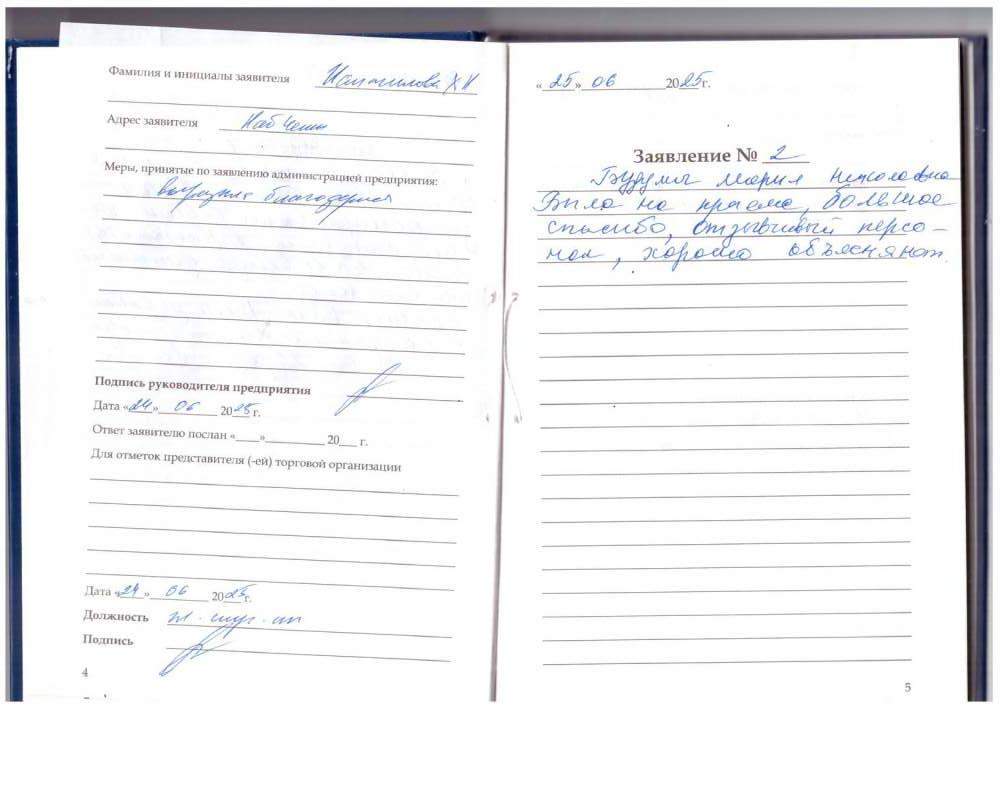 Фамилия и инициалы заявителя
Адрес заявителя Наб Челны
Меры, принятые по заявлению администрацией предприятия:
выражена благодарность
Подпись руководителя предприятия
Дата «24» 06 2025 г.
Ответ заявителю послан «____»__________ 20___ г.
Для отметок представителя (-ей) торговой организации
Дата «24» 06 2025 г.
Должность
Подпись
4
«25» 06 2025г.
Заявление № 2
Мария Николаевна
Была на приеме, большое
спасибо, отзывчивый персо-
нал, хорошо объясняют.
5